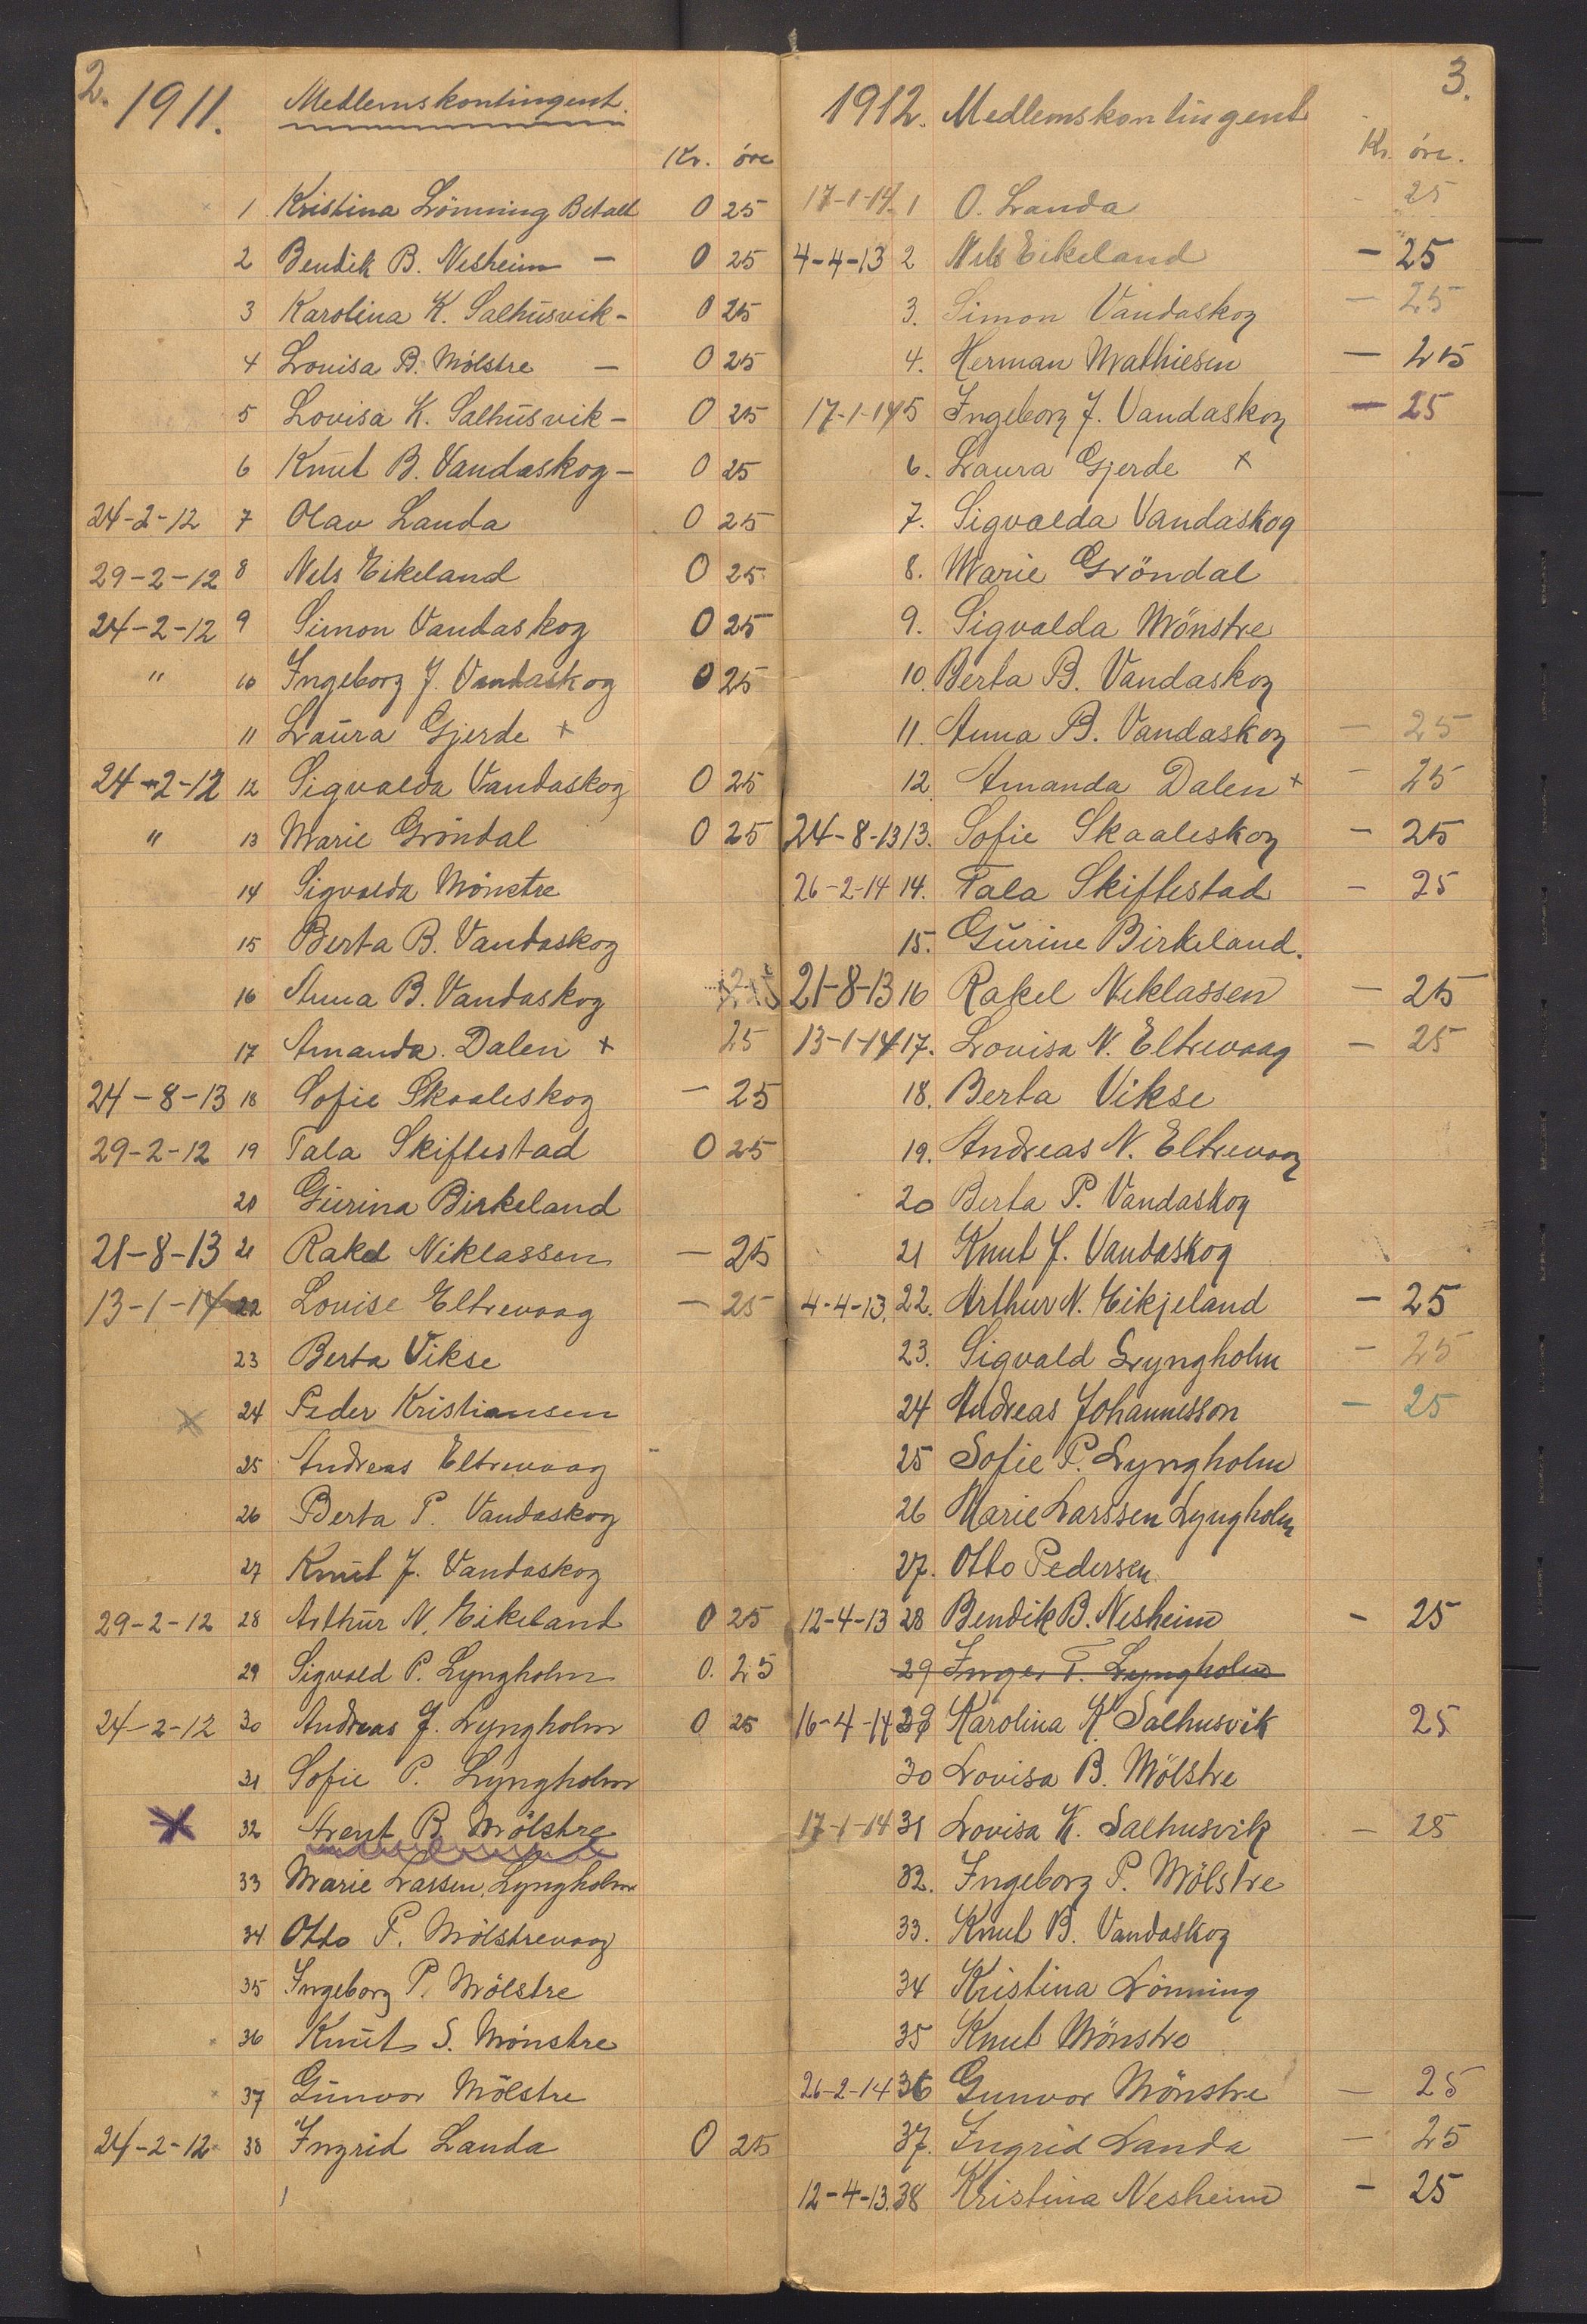 2.
1911. Medlemskontingent.
Kr. öre
1 Kristina Lönning Betalt 0 25
2 Bendik B. Nesheim — 0 25
3 Karolina K. Salhusvik - 0 25
4 Lovisa B. Mölstre — 0 25
5 Lovisa K. Salhusvik - 0 25
6 Knut B. Vandaskog - 0 25
24-2-12 7 Olav Landa 0 25
29-2-12 8 Nels Eikeland 0 25
24-2-12 9 Simon Vandaskog 0 25
" 10 Ingeborg J. Vandaskog 0 25
11 Laura Gjerde +
24-2-12 12 Sigvalda Vandaskog 0 25
" 13 Marie Gröndal 0 25
14 Sigvalda Mönstre
15 Berta B. Vandaskog
16 Anna B. Vandaskog 25
17 Amanda Dalen + 25
24-8-13 18 Sofie Skaaleskog — 25
29-2-12 19 Tala Skiftestad 0 25
20 Gurina Birkeland
21-8-13 21 Rakel Niklassen — 25
13-1-14 22 Lovise Eltrevaag — 25
23 Berta Vikse
x 24 Peder Kristiansen
25 Andreas Eltrevaag
26 Berta P. Vandaskog
27 Knut J. Vandaskog
29-2-12 28 Arthur N. Eikeland 0 25
29 Sigvald P. Lyngholm 0. 25
24-2-12 30 Andreas J. Lyngholm 0 25
31 Sofie P. Lyngholm
x 32 Arent B. Mölstre
33 Marie Larsen Lyngholm
34 Otto P. Mölstrevaag
35 Ingeborg P. Mölstre
36 Knut S. Mönstre
37 Gunvor Mölstre
24-2-12 38 Ingrid Landa 0 25
3.
1912. Medlemskontingent
Kr. öre.
17-1-14 1 O. Landa 25
4-4-13 2 Nels Eikeland — 25
3. Simon Vandaskog — 25
4. Herman Mathiesen — 25
17-1-14 5 Ingeborg J. Vandaskog — 25
6. Laura Gjerde x
7. Sigvalda Vandaskog
8. Marie Gröndal
9. Sigvalda Mönstre
10. Berta B. Vandaskog
11. Anna B. Vandaskog — 25
12. Amanda Dalen + — 25
24-8-13 13. Sofie Skaaleskog — 25
26-2-14 14. Tala Skiftestad — 25
15. Gurine Birkeland.
21-8-13 16 Rakel Niklassen — 25
13-1-14 17. Lovisa N. Eltrevaag — 25
18. Berta Vikse
19. Andreas N. Eltrevaag
20 Berta P. Vandaskog
21 Knut J. Vandaskog
4-4-13. 22. Arthur N. Eikjeland — 25
23. Sigvald Lyngholm — 25
24 Andreas Johannesson — 25
25 Sofie P. Lyngholm
26 Marie Larssen Lyngholm
27. Otto Pedersen
12-4-13 28 Bendik B. Nesheim — 25
29 Inger T. Lyngholm
16-4-14 29 Karolina K. Salhusvik 25
30 Lovisa B. Mölstre
17-1-14 31 Lovisa K. Salhusvik — 25
32. Ingeborg P. Mölstre
33. Knut B. Vandaskog
34 Kristina Lönning
35 Knut Mönstre
26-2-14 36 Gunvor Mönstre — 25
37. Ingrid Landa — 25
12-4-13. 38 Kristina Nesheim — 25